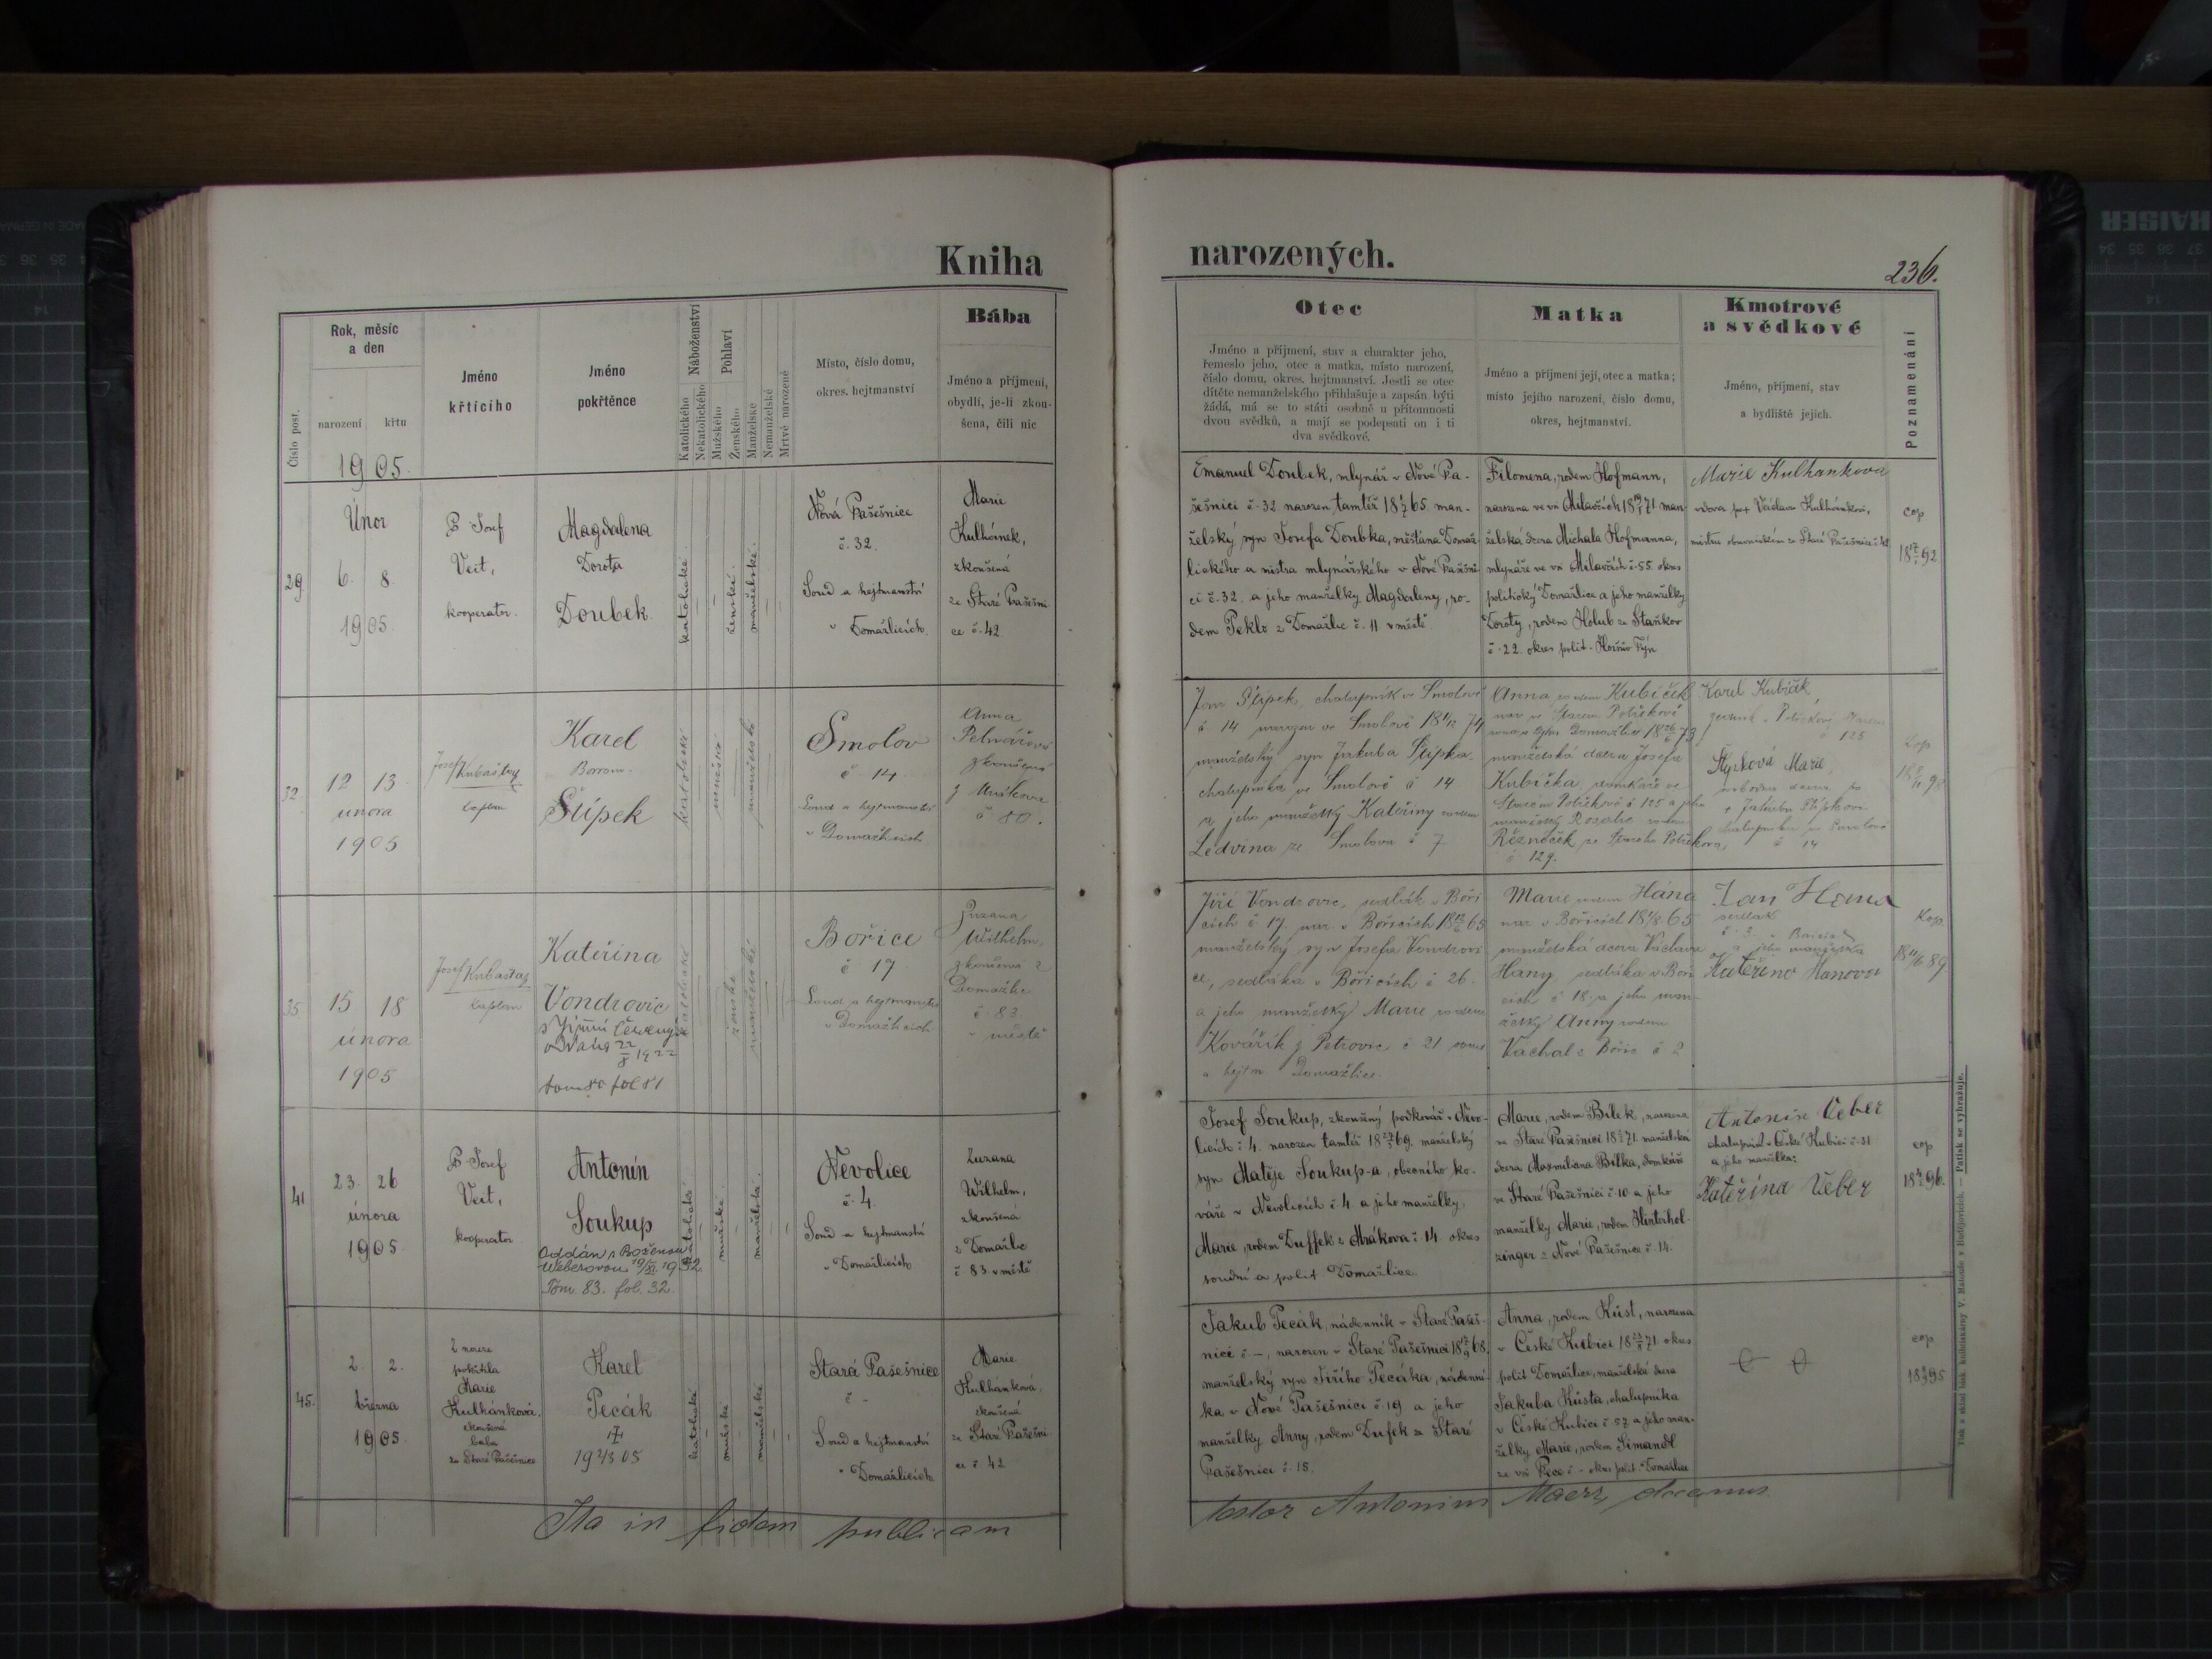 Kniha
narozených.
236.
Číslo post.
Rok, měsíc
a den
narození
křtu
1905.
Jméno
křtícího
Jméno
pokřtěnce
Náboženství
Katolického
Nekatolického
Pohlaví
Mužského
Ženského
Manželské
Nemanželské
Mrtvě narozené
Místo, číslo domu,
okres. hejtmanství
Bába
Jméno a příjmení,
obydlí, je-li zkou-
šena, čili nic
Otec
Jméno a příjmení, stav a charakter jeho,
řemeslo jeho, otec a matka, místo narození,
číslo domu, okres. hejtmanství. Jestli se otec
dítěte nemanželského přihlašuje a zapsán býti
žádá, má se to státi osobně u přítomnosti
dvou svědků, a mají se podepsati on i ti
dva svědkové.
Matka
Jméno a příjmení její, otec a matka;
místo jejího narození, číslo domu,
okres, hejtmanství.
Kmotrové
a svědkové
Jméno, příjmení, stav
a bydliště jejich.
Poznamenání
29.
Únor
6. 8.
1905.
P. Josef
Veit,
kooperator.
Magdalena
Dorota
Doubek.
katolické.
ženské.
manželské.
Nová Pašešnice
č. 32.
Soud a hejtmanství
v Domažlicích.
Marie
Kulhánek,
zkoušená
ze Staré Pašešni-
ce č. 42.
Emanuel Doubek, mlynář v Nové Pa-
šešnici č. 32 narozen tamtéž 18 65. man-
želský syn Josefa Doubka, měšťana Domaž-
lického a mistra mlynářského v Nové Pašešni-
ci č. 32. a jeho manželky Magdaleny, ro-
dem Peklo z Domažlic č. 11. v městě
Filomena, rodem Hofmann,
narozena ve vsi Milavčích 18 71 man-
želská dcera Michala Hofmanna,
mlynáře ve vsi Milavčích č. 55. okres
politický Domažlice a jeho manželky
Doroty, rodem Holub ze Staňkov
č. 22. okres polit. Horšův Týn
Marie Kulhankova
vdova po + Václavu Kulhánkovi,
mistru obuvnickém ze Staré Pašešnice č. 42
cop
18 92
32.
12 13
února
1905
Josef Kubaštay
kaplan
Karel
Borrom.
Štípek
katolické
mužské
manželské
Smolov
č 14.
Soud a hejtmanství
v Domažlicích
Anna
zkoušená
č 80.
Jan Štípek, chalupník ve Smolově
č 14 narozen ve Smolově 18 74
manželský syn Jakuba Štípka
chalupníka ve Smolově č 14
a jeho manželky Kateřiny rodem
Ledvina ze Smolova č 7
Anna rodem Kubíček
nar ve Starém Postřekově
manželská dcera Josefa
Kubíčka domkáře ve
Starém Postřekově č 125 a jeho
manželky Rosalie rodem
Řezníček ze Starého Postřekova,
č 129.
Karel Kubíček
č 125
Štípková Marie
č 14
Kop
18 98
35
15 18
února
1905
Josef Kubaštay
kaplan
Kateřina
Vondrovic
s Jiřím Červeným
oddána 22/X 1922
tom 80 fol 81
katolické
ženské
manželské
Bořice
č 17
Soud a hejtmanství
v Domažlicích
Zuzana
Wilhelm,
zkoušená z
Domažlic
č 83
v městě
Jiří Vondrovic, sedlák v Boři-
cích č 17, nar. v Bořicích 18 65
manželský syn Josefa Vondrovi-
ce, sedláka v Bořicích č 26.
a jeho manželky Marie rodem
Kovářík z Petrovic č 21 okres
a hejtm Domažlice.
Marie rodem Hána
nar v Bořicích 18 65
manželská dcera Václava
Hany, sedláka v Boři-
cích č 18. a jeho man-
želky Anny rodem
Váchal z Bořic č 2
Jan Hana
sedlák
a jeho manželka
Kateřina Hanova
Kop
18 89
41
23. 26
února
1905
P. Josef
Veit,
kooperator
Antonín
Soukup
Oddán s Boženou
Weberovou 19/XI. 1932.
Tom. 83. fol. 32.
katolické
mužské.
manželské.
Nevolice
č. 4.
Soud a hejtmanství
v Domažlicích
Zuzana
Wilhelm,
zkoušená
z Domažlic
č 83 v městě
Josef Soukup, zkoušený podkovář v Nevo-
licích č. 4. narozen tamtéž 18 69. manželský
syn Matěje Soukup-a, obecního ko-
váře v Nevolicích č. 4 a jeho manželky,
Marie, rodem Duffek z Mrákova č. 14. okres
soudní a polit. Domažlice.
Marie, rodem Bílek, narozena
ve Staré Pašešnici 18 71. manželská
dcera Maxmiliana Bílka, domkáře
ve Staré Pašešnici č. 10 a jeho
manželky Marie, rodem Hinterhol-
zinger z Nové Pašešnice č. 14.
Antonín Veber
chalupník v České Kubici č. 31
a jeho manželka:
Kateřina Veber
cop
18 96.
45.
2. 2.
března
1905
Z nouze
pokřtila
Marie
Kulhánková,
zkoušená
baba
ze Staré Pašešnice
Karel
Pecák
19 05
katolické
mužské
manželské
Stará Pašešnice
č. -
Soud a hejtmanství
v Domažlicích
Marie
Kulhánková,
zkoušená
ze Staré Pašešni-
ce č. 42
Jakub Pecák, nádenník v Staré Pašeš-
nici č -, narozen v Staré Pašešnici 18 68.
manželský syn Jiřího Pecáka, nádenní-
ka v Nové Pašešnici č. 19 a jeho
manželky Anny, rodem Dufek ze Staré
Pašešnici č. 18.
Anna, rodem Küst, narozena
v České Kubici 18 71 okres
polit Domažlice, manželská dcera
Jakuba Küsta, chalupníka
v České Kubici č 57 a jeho man-
želky Marie, rodem Simandl
ze vsi Pece č - okres polit. Domažlice
cop
18 95
Ita in fidem publicam
testor Antonius Maerz, decanus.
Tisk a sklad bisk. knihtiskárny V. Matouše v Budějovicích. — Patisk se vyhražuje.
KAISER
MADE IN GERMANY